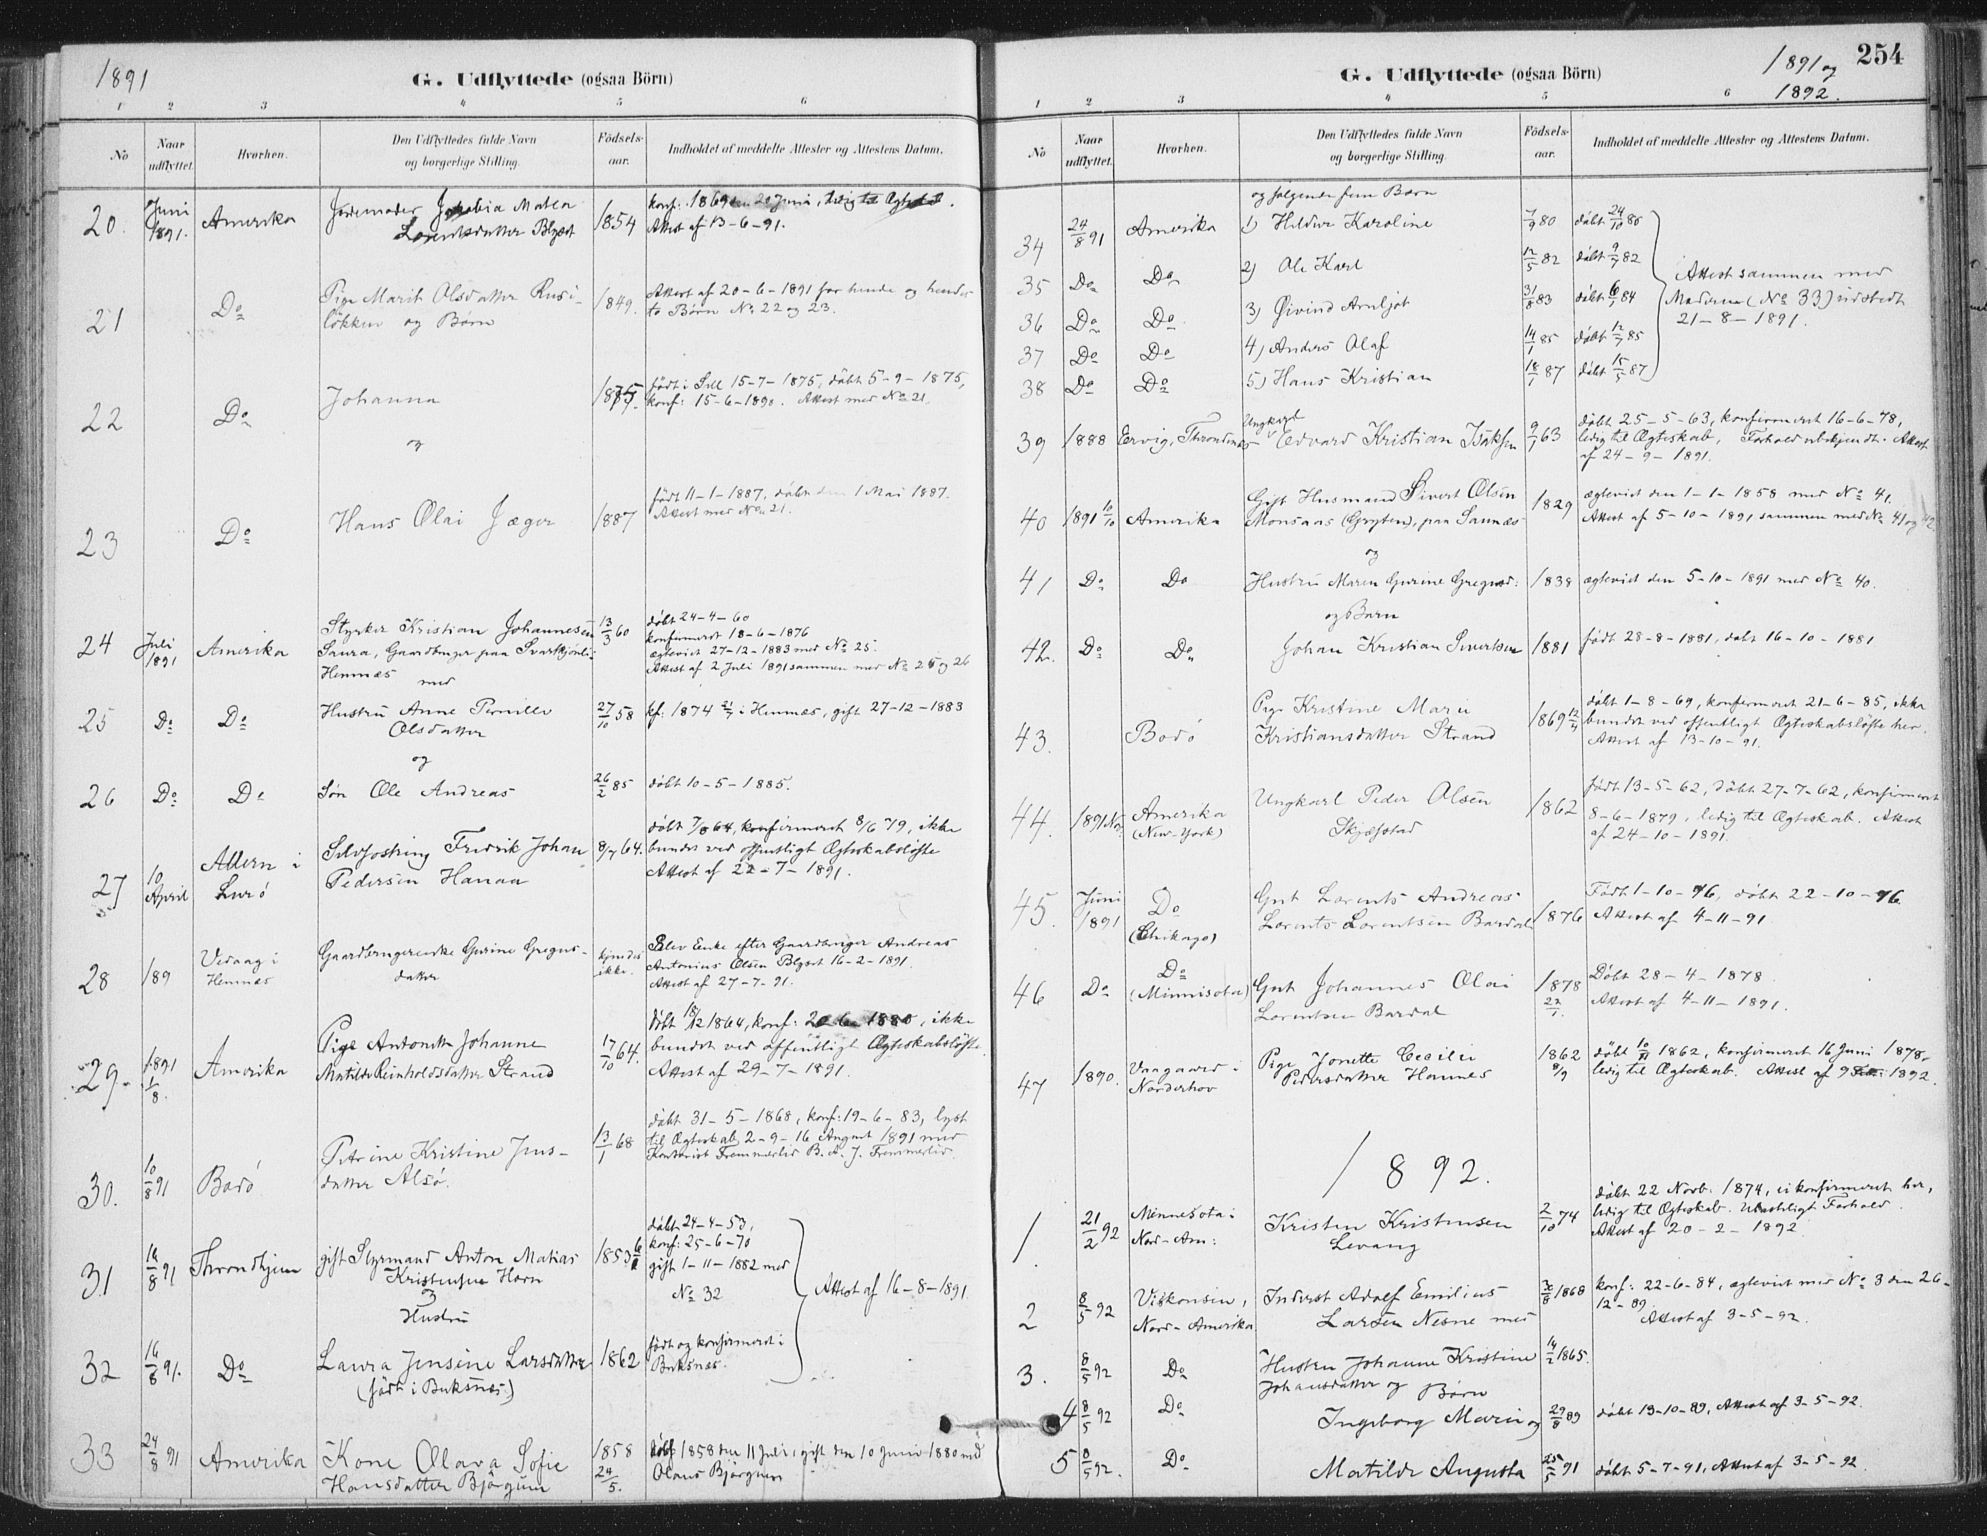 1891
G. Udflyttede (ogsaa Börn)
1 2 3 4 5 6
No
Naar udflyttet.
Hvorhen.
Den Udflyttedes fulde Navn og borgerlige Stilling.
Födsels-aar.
Indholdet af meddelte Attester og Attestens Datum.
20. Juni 1891. Amerika Jordemoder Jakobia Matea 1854 konf. 1869 den 20 Juni, ledig til Ægtesk.
Lorentsdatter Blyset Attest af 13-6-91.
21 Do Pige Marit Olsdatter Rusi- 1849. Attest af 20-6-1891 for hende og hendes
løkken og Børn to Børn No 22 og 23.
22 Do Johanna 1875. født i 15-7-1875, døbt 5-9-1875,
og konf: 15-6-1890. Attest med No 21.
23 Do Hans Olai Jæger 1887 født 11-1-1887, døbt den 1 Mai 1887.
Attest med No 21.
24 Juli 1891 Amerika Styrker Kristian Johannesen 13/3 60 døbt 24-4-60
Saura, Gaardbruger paa Svartkjønli konfirmeret 18-6-1876
Hemnæs ægteviet 27-12-1883 med No 25.
med Attest af 2 Juli 1891 sammen med No 25 og 26
25 Do Do Hustru Anne Pernille 27/10 58 kf. 1874 21/7 i Hemnæs, gift 27-12-1883
Olsdatter
og
26 Do Do Søn Ole Andreas 26/2 85 døbt 10-5-1885.
27 10 April Altern i Lurö Fredrik Johan 8/7 64. døbt 7/8 64, konfirmeret 8/6 79, ikke
Pedersen Hanaa bundet ved offentligt Ægteskabsløfte
Attest af 22-7-1891.
28 189 Vedaag i Hemnæs Gaardbrugerenke Gurine Gregus- kjendes ikke. Blev Enke efter Gaardbruger Andreas
datter Antonius Olsen Blyset 16-2-1891
Attest af 27-7-91.
29. 1891 1/8. Amerika Pige Antonette Johanne 17/10 64. døbt 18/12 1864, konf: 20-6-1880, ikke
Matilde Reinholdsdatter Strand bundet ved offentligt Ægteskabsløfte.
Attest af 29-7-1891.
30. 10/8 91 Bodø Petrine Kristine Jens- 13/1 68 døbt 31-5-1868, konf: 19-6-83, lyst
datter Alsø. til Ægteskab 2-9-16 August 1891 med
Kontorist Fremmerlid B. A. J. Fremmerlid.
31 16/8 91 Throndhjem gift Styrmand Anton Matias 1853 døbt 24-4-53,
Kristensen Horn konf: 25-6-70
Hustru gift 1-11-1882 med
No 32
Attest af 16-8-1891.
32 16/8 91. Do Laura Jensine Larsdatter 1862 født og konfirmeret i
(født i Buksnæs) Buksnæs.
33 24/8 91 Amerika Kone Olava Sofie 1858 24/5. døbt 1858 den 11 Juli, gift den 10 Juni 1880 med
Hansdatter Bjørgum Olaus Bjørgum
G. Udflyttede (ogsaa Börn)
1891 og 1892.
254
1 2 3 4 5 6
No
Naar udflyttet.
Hvorhen.
Den Udflyttedes fulde Navn og borgerlige Stilling.
Födsels-aar.
Indholdet af meddelte Attester og Attestens Datum.
og følgende fem Børn
34 24/8 91 Amerika 1) Hildur Karoline 7/9 80 døbt 24/10 80
35 Do Do 2) Ole Karl 12/5 82 døbt 9/7 82
36 Do Do 3) Øivind Arnljot 31/8 83 døbt 6/1 84
37 Do Do 4) Anders Olaf 14/1 85 døbt 12/7 85
38 Do Do 5) Hans Kristian 18/1 87 døbt 15/5 87
Attest sammen med
Moderen (No 33) udstedt
21-8-1891.
39 1888 Ungkarl Edvard Kristian Isaksen 9/1 63 døbt 25-5-63, konfirmeret 16-6-78,
ledig til Ægteskab, Forhold ubekjendt. Attest
af 24-9-1891.
40 1891 10/10 Amerika Gift Husmand Sivert Olsen 1829 ægteviet den 1-1-1858 med No 41.
Monsaas (Gryten), paa Saunæs Attest af 5-10-1891 sammen med No 41 og 42
og
41 Do Do Hustru Maren Gurine Gregusd: 1838 ægteviet den 5-10-1891 med No 40.
og Barn
42. Do Do Johan Kristian Sivertsen 1881 født 28-8-1881, døbt 16-10-1881
43. Bodø Pige Kristine Marie 1869 døbt 1-8-69, konfirmeret 21-6-85, ikke
Kristiansdatter Strand bundet ved offentligt Ægteskabsløfte her.
Attest af 13-10-91.
44. 1891 Nov Amerika Ungkarl Peder Olsen 1862 født 13-5-62, døbt 27-7-62, konfirmeret
(New-York) Skjæfstad 8-6-1879, ledig til Ægteskab. Attest
af 24-10-1891.
45. Juni 1891 Do Gut Lorents Andreas 1876 Født 1-10-76, døbt 22-10-76
(Chikago) Lorents Lorentsen Bardal Attest af 4-11-91.
46 Do Do Gut Johannes Olai 1878 Døbt 28-4-1878.
(Minnisota) Lorentsen Bardal Attest af 4-11-1891.
47 1890. Vaagaard i Pige Jonette Cecilie 1862 8/9 døbt 1862, konfirmeret 16 Juni 1878,
Norderhov Pedersdatter Hannes ledig til Ægteskab. Attest af 9 1892.
1892.
1 21/2 92 Minnesota i Kristen Kristensen 2/10 74 døbt 22 Novb. 1874, ei konfirmeret her,
Nord-Am: Levang ledig til Ægteskab. Forhold.
Attest af 20-2-1892
2 8/5 92 Viskonsin, Inderst Adolf Emilius 1868 konf: 22-6-84, ægteviet med No 3 den 26-
Nord-Amerika Larsen Nesne med 12-89. Attest af 3-5-92.
3. 8/5 92 Do Hustru Johanne Kristine 14/2 1865.
Johansdatter og Børn
4 8/5 92 Do Ingeborg Marie og 29/8 89 døbt 13-10-89, Attest af 3-5-92.
5 8/5 92. Do Matilde Augusta 25/5 91 døbt 5-7-91, Attest af 3-5-92.